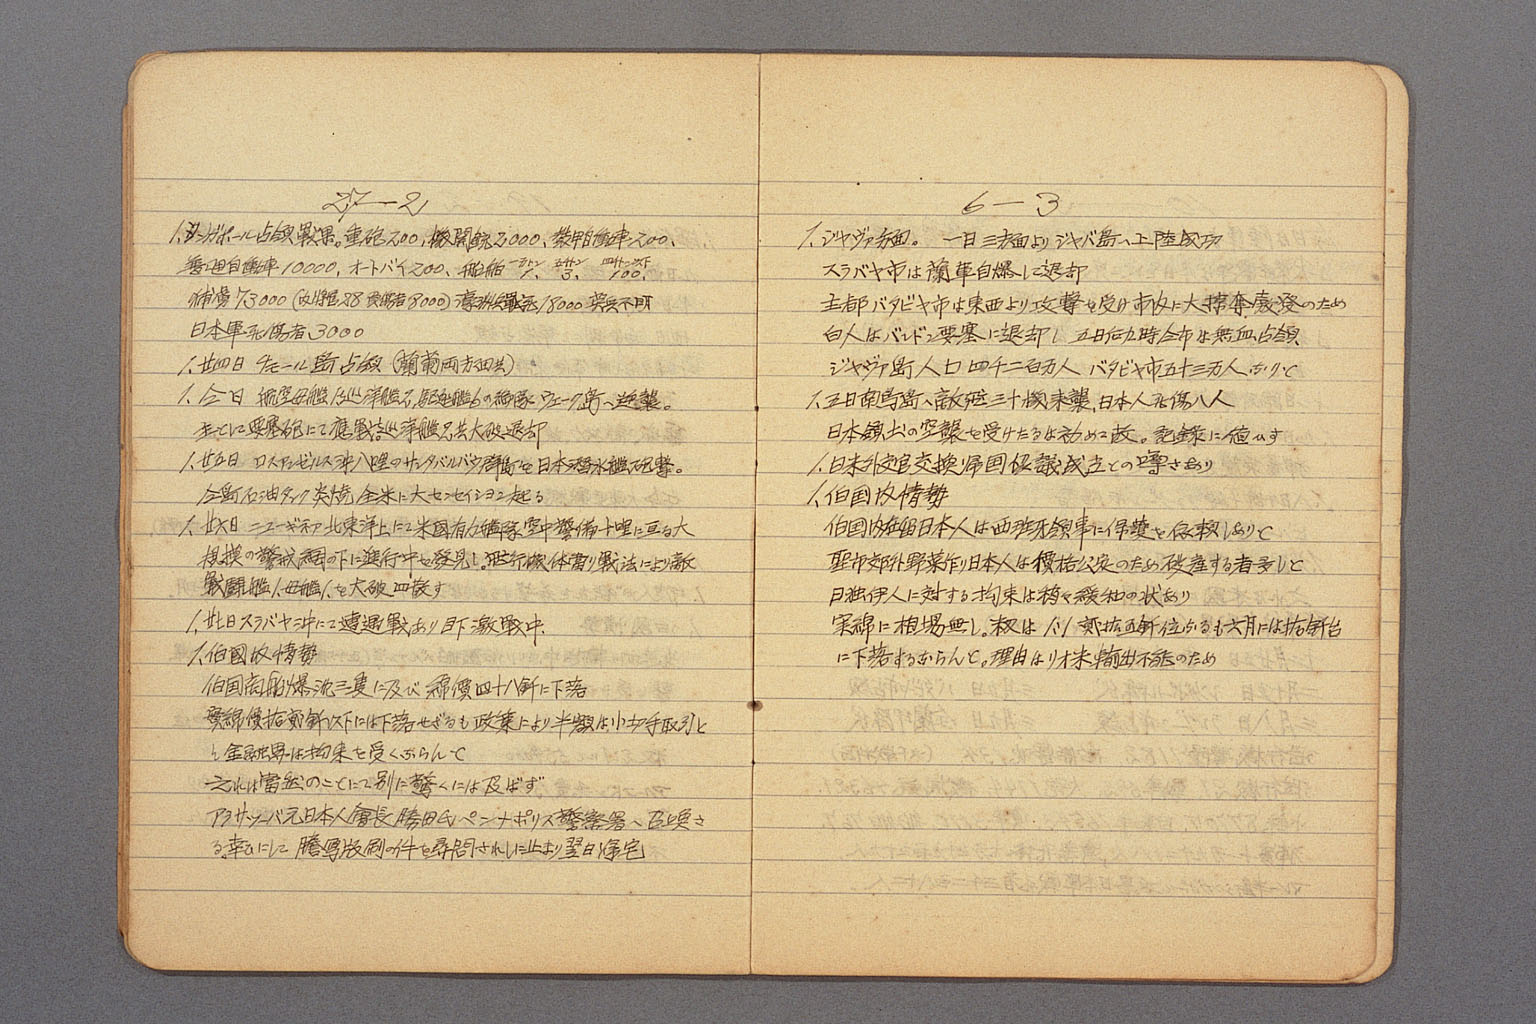 27—2
1. シンガポール占領戦果。重砲200、機関銃2000、装甲自動車200、
普通自動車10000、オートバイ200、船舶 一万トン 1. 五千トン 3. 四千トン以下 100.
捕虜73000 (内将官28 負傷者8000) 濠洲兵戦死18000 英兵不明
日本軍死傷者3000
1. 廿四日 チモール島占領 (蘭葡両方面共)
1. 今日 航空母艦1、巡洋艦2、駆逐艦6の艦隊ウェーク島へ逆襲。
主として要塞砲にて應戦 巡洋艦2共大破退却
1. 廿五日 ロスアンゼルス沖八哩のサンタバルバラ群島を日本潜水艦砲撃。
全島石油タンク炎焼 全米に大センセイション起る
1. 廿六日 ニューギネア北東洋上にて米国有力艦隊空中警備十哩に亘る大
規模の警戒網の下に進行中を発見し、飛行機体当り戦法により敵
戦闘艦1. 母艦1. を大破四散す
1. 廿七日スラバヤ沖にて遭遇戦あり目下激戦中.
1. 伯國内情勢
伯国商船爆沈三隻に及び 綿價四十八釺に下落
実綿價拾釺以下には下落せざるも政策により半額は小切手取引と
し金融界は拘束を受くならんと
之れは當然のことにて別に驚くには及ばず
アラサツーバ元日本人會長勝田氏ペンナポリス警察署へ召喚さ
る。幸ひにして謄写版刷の件を尋問されしに止より翌日帰宅
6—3
1. ジャヴァ方面。 一日三方面よりジャバ島へ上陸成功
スラバヤ市は蘭軍自爆して退却
主都バタビヤ市は東西より攻撃を受け市内に大掠奪激発のため
白人はバンドン要塞に退却し 五日后九時全市は無血占領
ジャヴァ島人口四千二百万人 バタビヤ市五十三万人なりと
1. 五日南鳥島へ敵飛三十機来襲、日本人死傷八人
日本領土の空襲を受けたるは初めて故。記録に値ひす
1. 日米外交官交換帰国協議成立との噂さあり
1. 伯国内情勢
伯国内在留日本人は西班牙領事に保護を依頼しありと
聖市郊外野菜作り日本人は價格公定のため破産する者多しと
日独伊人に対する拘束は稍々緩和の状あり
実綿に相場無し。相場は1/1 拾五釺位なるも六月には拾釺台
に下落するならんと。理由は対米輸出不能のため